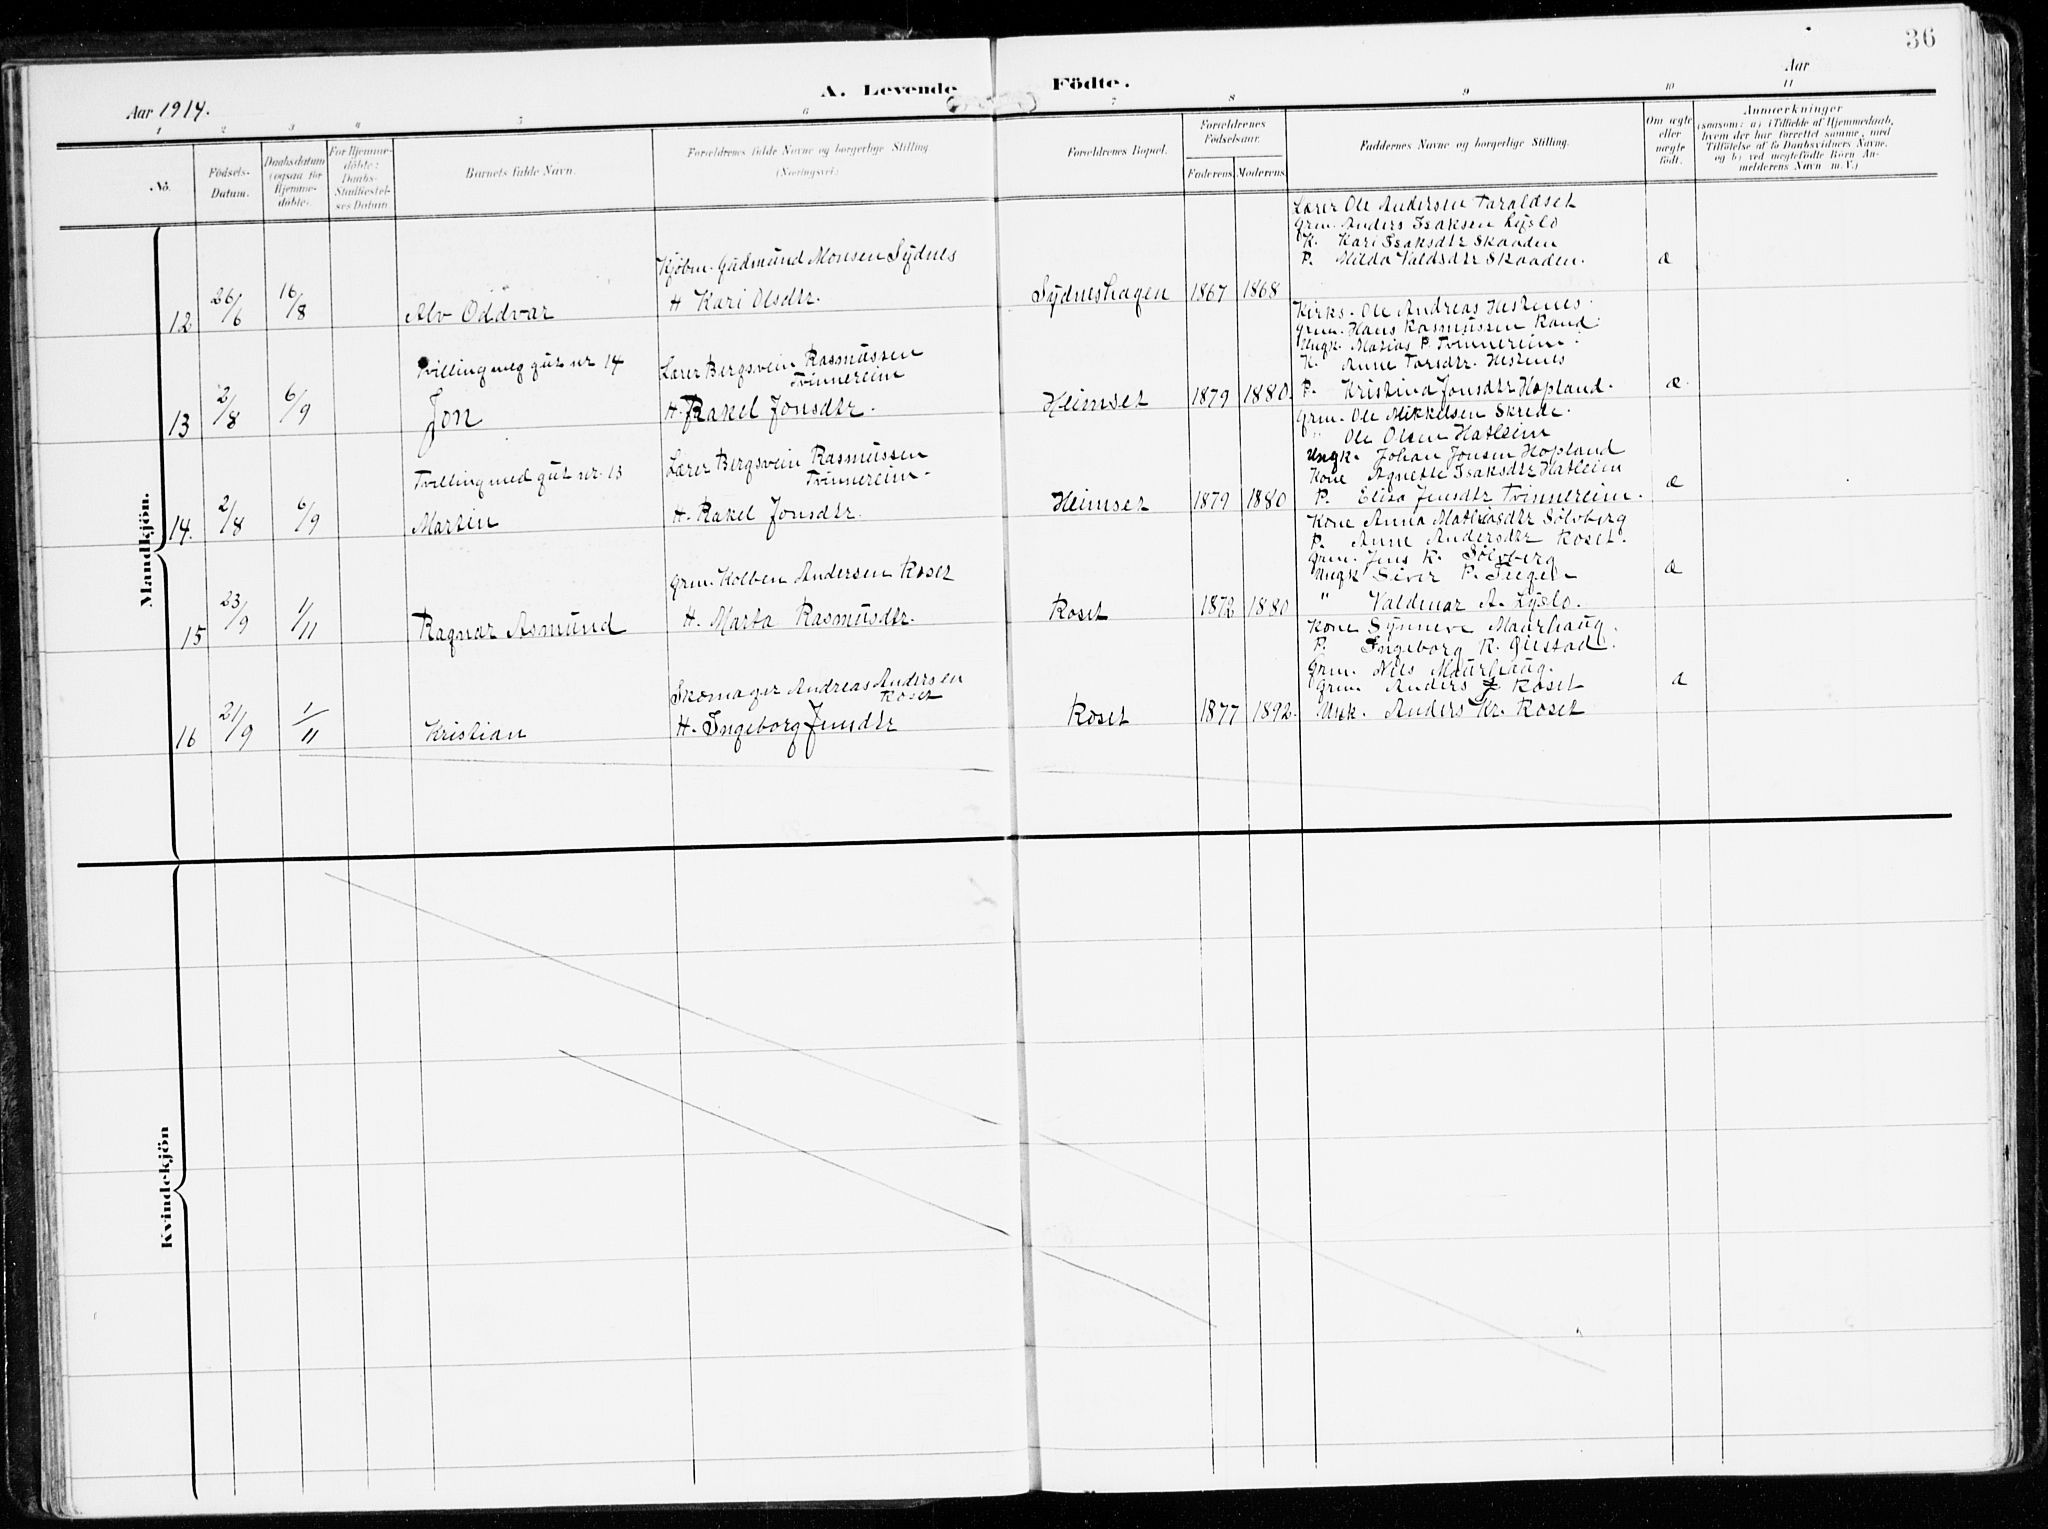 36
Aar 1914.
A. Levende Födte.
Aar
1 2 3 4 5 6 7 8 9 10 11
No.
Födsels-
Datum.
Daabsdatum
(ogsaa for
Hjemme-
döbte.
For Hjemme-
döbte:
Daabs-
Stadfæstel-
ses Datum.
Barnets fulde Navn.
Forældrenes fulde Navne og borgerlige Stilling.
(Næringsvei)
Forældrenes Bopæl.
Forældrenes
Födselsaar.
Faderens Moderens
Faddernes Navne og borgerlige Stilling.
Om ægte
eller
uægte
födt.
Anmærkninger
(saasom: a) i Tilfælde af Hjemmedaab,
hvem der har forrettet samme, med
Tilföielse af to Daabsvidners Navne,
og b) ved uægtefödte Börn An-
melderens Navn m. V.)
Mandkjön.
12 26/6 16/8
Alv Oddvar
Kjöbm. Gudmund Monsen Sydnes
H Kari Olsdtr.
Sydneshagen 1867 1868
Lærer Ole Andersen Taraldset
Grm. Anders Isaksen Lyslo
K. Kari Isaksdtr Skaaden
P. Milda Valdsdtr Skaaden.
æ
13 2/8 6/9
Tvilling meg gut nr 14
Jon
Lærer Bergsvein Rasmussen
Tvinnereim
H. Rakel Jonsdtr.
Heimset 1879 1880.
Kirks. Ole Andreas Hestenes.
Grm. Hans Rasmussen Rand.
Ungk. Matias P. Tvinnereim.
K. Anne Torsdtr. Hestenes
P. Kristina Jonsdtr Hopland.
æ
14. 2/8 6/9
Tvilling med gut nr. 13
Martin
Lærer Bergsvein Rasmussen
Tvinnereim.
H. Rakel Jonsdtr.
Heimset 1879 1880
Grm. Ole Mikkelsen Skrede.
" Ole Olsen Hatleim
Ungk. Johan Jonsen Hopland
Kone Agnette Isaksdtr Hatleim
P. Elisa Jensdtr Tvinnereim.
æ
15 23/9 1/11
Ragnar Asmund
Grm. Kolben Andersen Roset
H. Marta Rasmusdtr.
Roset 1872 1880
Kone Anna Mathiasdtr Sölvberg
P. Anne Andersdtr Roset.
Grm. Jens K. Sölvberg
Ungk Siver P.
" Valdemar A. Lyslo.
æ
16 21/9 1/11
Kristian
Skomager Andreas Andersen
Roset
H. Ingeborg Jensdtr
Roset 1877 1892.
Kone Synneve Maurhaug.
P. Ingeborg R. Gjestad.
Grm. Nils Maurhaug.
Grm. Anders J. Roset
Ungk. Anders Kr. Roset
æ
Kvindekjön